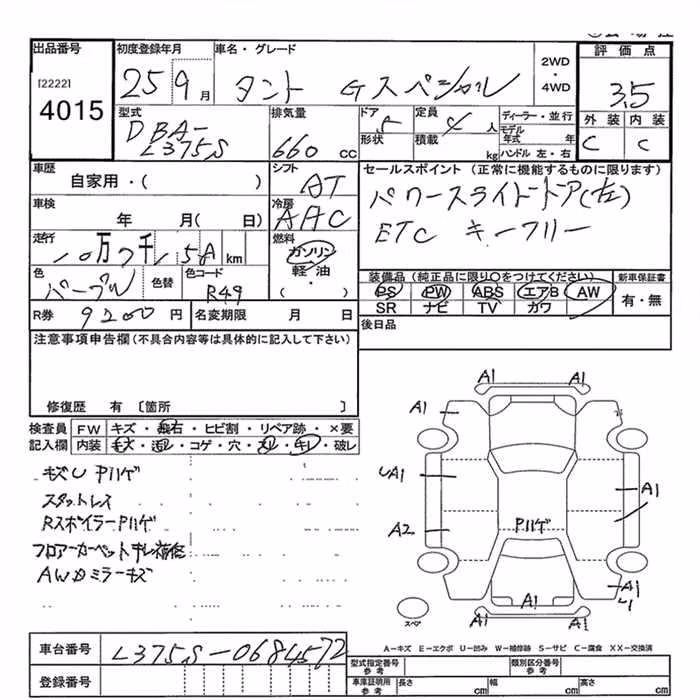 出品番号 初度登録年月 車名・グレード 2WD・4WD 評価点
[2222] 4015 25 9月 タント Gスペシャル 3.5
型式 排気量 ドア 形状 定員 人 積載 kg ディーラー・並行 モデル年式 年 ハンドル 左・右 外装 内装
DBA-L375S 660cc 5 4 C C
車歴 自家用・( ) シフト AT セールスポイント(正常に機能するものに限ります)
車検 年 月(日) 冷房 AAC パワースライドドア(左)
走行 10万7千 km 燃料 ガソリン・軽油・( ) ETC キーフリー
色 パープル 色替 色コード R49 装備品(純正品に限り○をつけてください) 新車保証書
PS PW ABS エアB AW 有・無
SR ナビ TV カワ
R券 9200円 名変期限 月 日 後日品
注意事項申告欄(不具合内容等は具体的に記入して下さい)
修復歴 有 〔箇所 〕
検査員記入欄 FW キズ・飛石・ヒビ割・リペア跡・×要
内装 キズ・汚レ・コゲ・穴・スレ・キレ・破レ
キズU Pハゲ
スタットレス
RスポイラーPハゲ
フロアーカーペットキレ補修
AWドミラーキズ
A1 A1
A1
UA1 A1
A2 Pハゲ
A1
A1 A1
スペア
A−キズ E−エクボ U−凹み W−補修跡 S−サビ C−腐食 XX−交換済
車台番号 L375S-0684572
登録番号
型式指定番号 参考 類別区分番号 参考
車庫証明用 参考 長さ cm 幅 cm 高さ cm